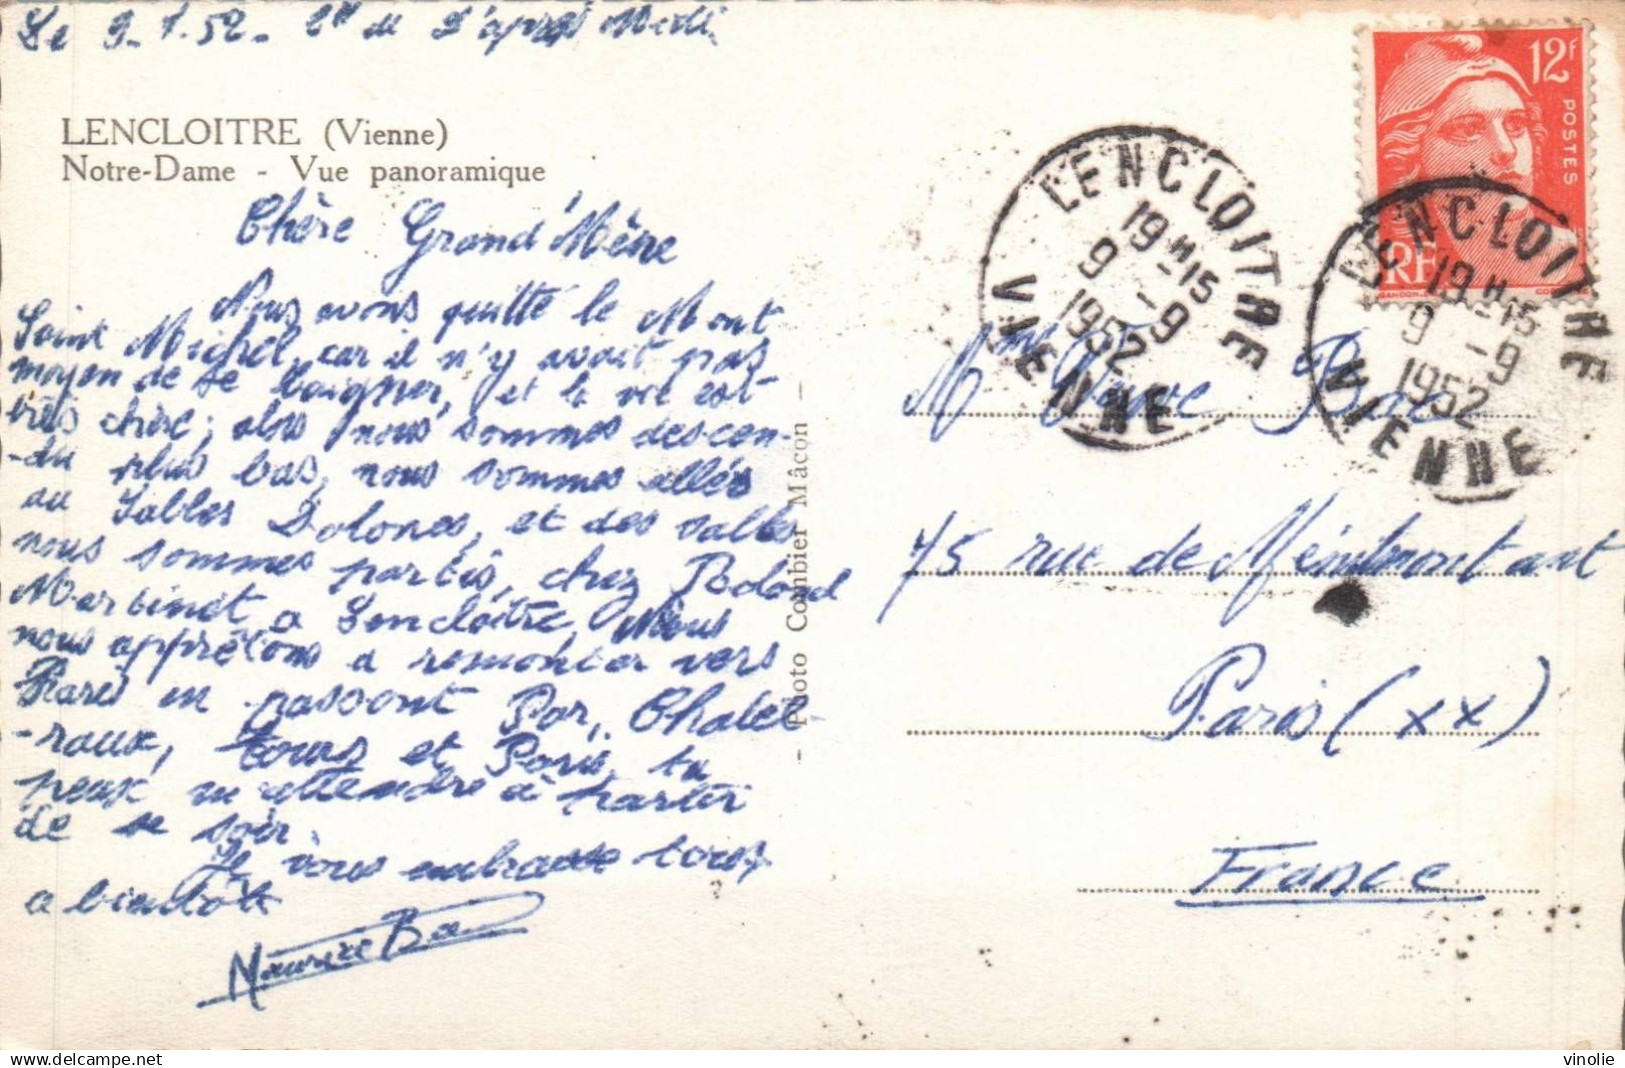 Le 9-9.52. 2H de L'après Midi.
LENCLOITRE (Vienne)
Notre-Dame - Vue panoramique
Chère Grand'Mère
Nous avons quitté le Mont
Saint Michel, car il n'y avait pas
moyen de se baigner, et la vie est
très chère; alors nous sommes descen-
-du plus bas, nous sommes allés
au Sables Dolones, et des Salles
nous sommes partis, chez Roland
Martinet a Lencloître, Nous
nous apprêtons a remonter vers
Paris en passant Par, Chatel-
-raux, tours et Paris, tu
peux m attendre à partir
de se soir.
Je vous embrasse tous,
a bientôt
Maurice
- Photo Combier Mâcon -
12F
POSTES
RF
LENCLOITRE
19H15
9-9
1952
VIENNE
LENCLOITRE
19H15
9-9
1952
VIENNE
Mme Veuve
75 rue de Ménilmontant
Paris (XX)
France
vinolie